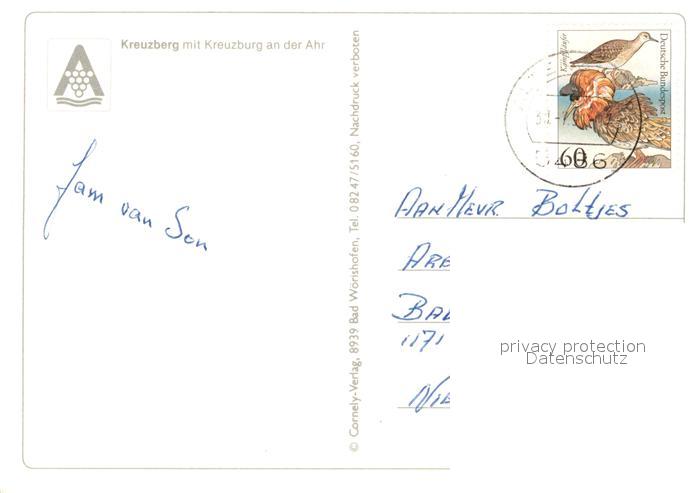 Kreuzberg mit Kreuzburg an der Ahr
Fam van Son
© Cornely-Verlag, 8939 Bad Wörishofen, Tel. 08247/5160, Nachdruck verboten
Kampfläufer
Deutsche Bundespost
60
5486
Aan Mevr. Boltjes
Are
Bad
1171
Nie
privacy protection
Datenschutz